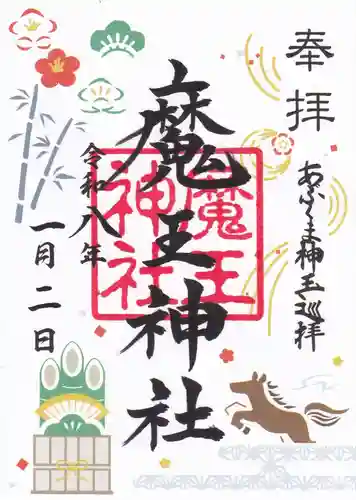 奉拝
あふくま神玉巡拝
魔王神社
魔王
神社
令和八年
一月二日